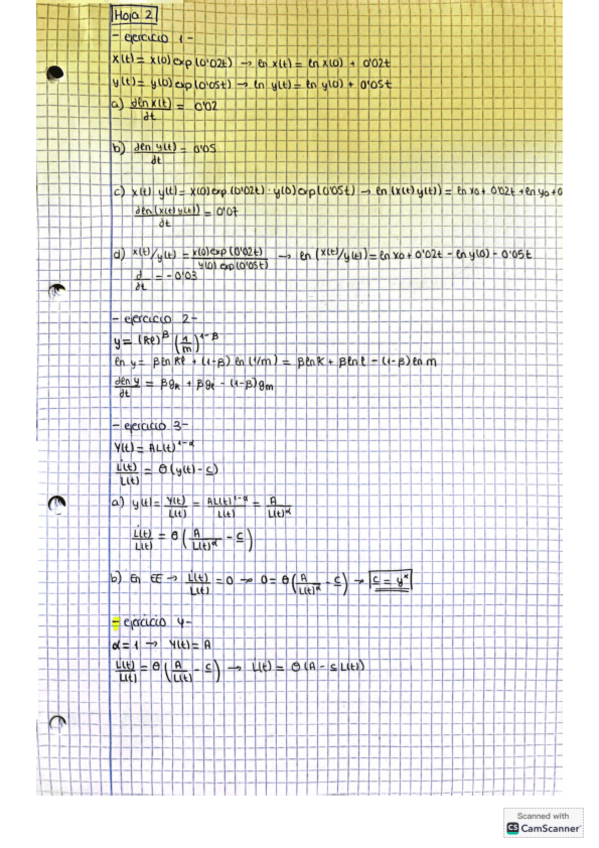 Hoja 2
- ejercicio 1 -
x(t) = x(0) exp(0'02t) → ln x(t) = ln x(0) + 0'02t
y(t) = y(0) exp(0'05t) → ln y(t) = ln y(0) + 0'05t
a) dln x(t)/dt = 0'02
b) dln y(t)/dt = 0'05
c) x(t) · y(t) = x(0) exp(0'02t) · y(0) exp(0'05t) → ln (x(t) y(t)) = ln x0 + 0'02t + ln y0 + 0
dln (x(t) y(t))/dt = 0'07
d) x(t)/y(t) = x(0) exp(0'02t)/y(0) exp(0'05t) → ln (x(t)/y(t)) = ln x0 + 0'02t - ln y(0) - 0'05t
d/dt = -0'03
- ejercicio 2 -
y = (kl)^β (1/m)^1-β
ln y = β ln kl + (1-β) ln (1/m) = β ln k + β ln l - (1-β) ln m
dln y/dt = β gk + β gl - (1-β) gm
- ejercicio 3 -
Y(t) = AL(t)^1-α
L̇(t)/L(t) = θ (y(t) - c)
a) y(t) = Y(t)/L(t) = AL(t)^1-α/L(t) = A/L(t)^α
L̇(t)/L(t) = θ (A/L(t)^α - c)
b) En EE → L̇(t)/L(t) = 0 → 0 = θ (A/L(t)^α - c) → c = y*
- ejercicio 4 -
α = 1 → Y(t) = A
L̇(t)/L(t) = θ (A/L(t) - c) → L̇(t) = θ (A - c L(t))
Scanned with
CS CamScanner